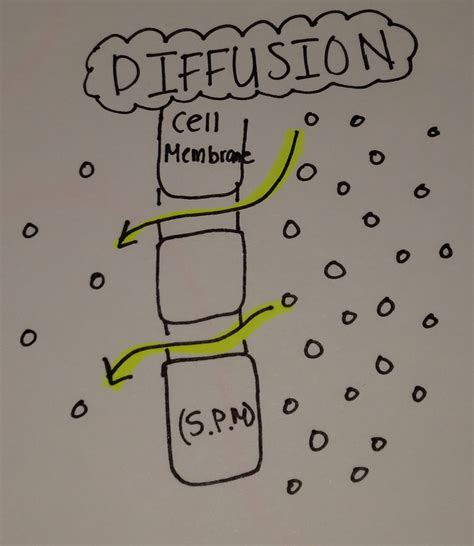 DIFFUSION
Cell
Membrane
(S.P.M)